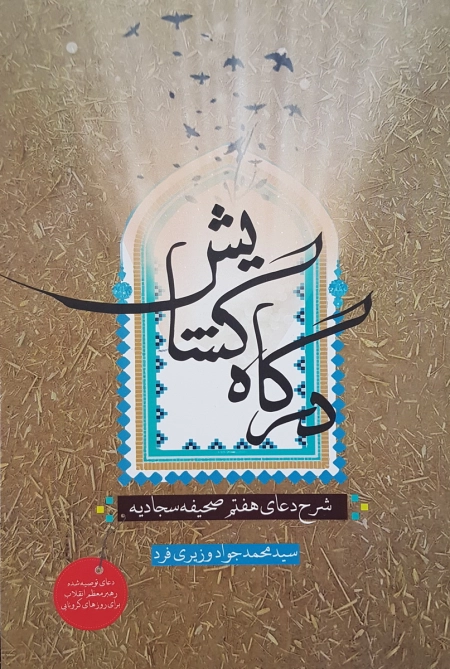 درگاه گشایش
شرح دعای هفتم صحیفه سجادیه
سید محمد جواد وزیری فرد
دعای توصیه شده
رهبر معظم انقلاب
برای روزهای کرونایی